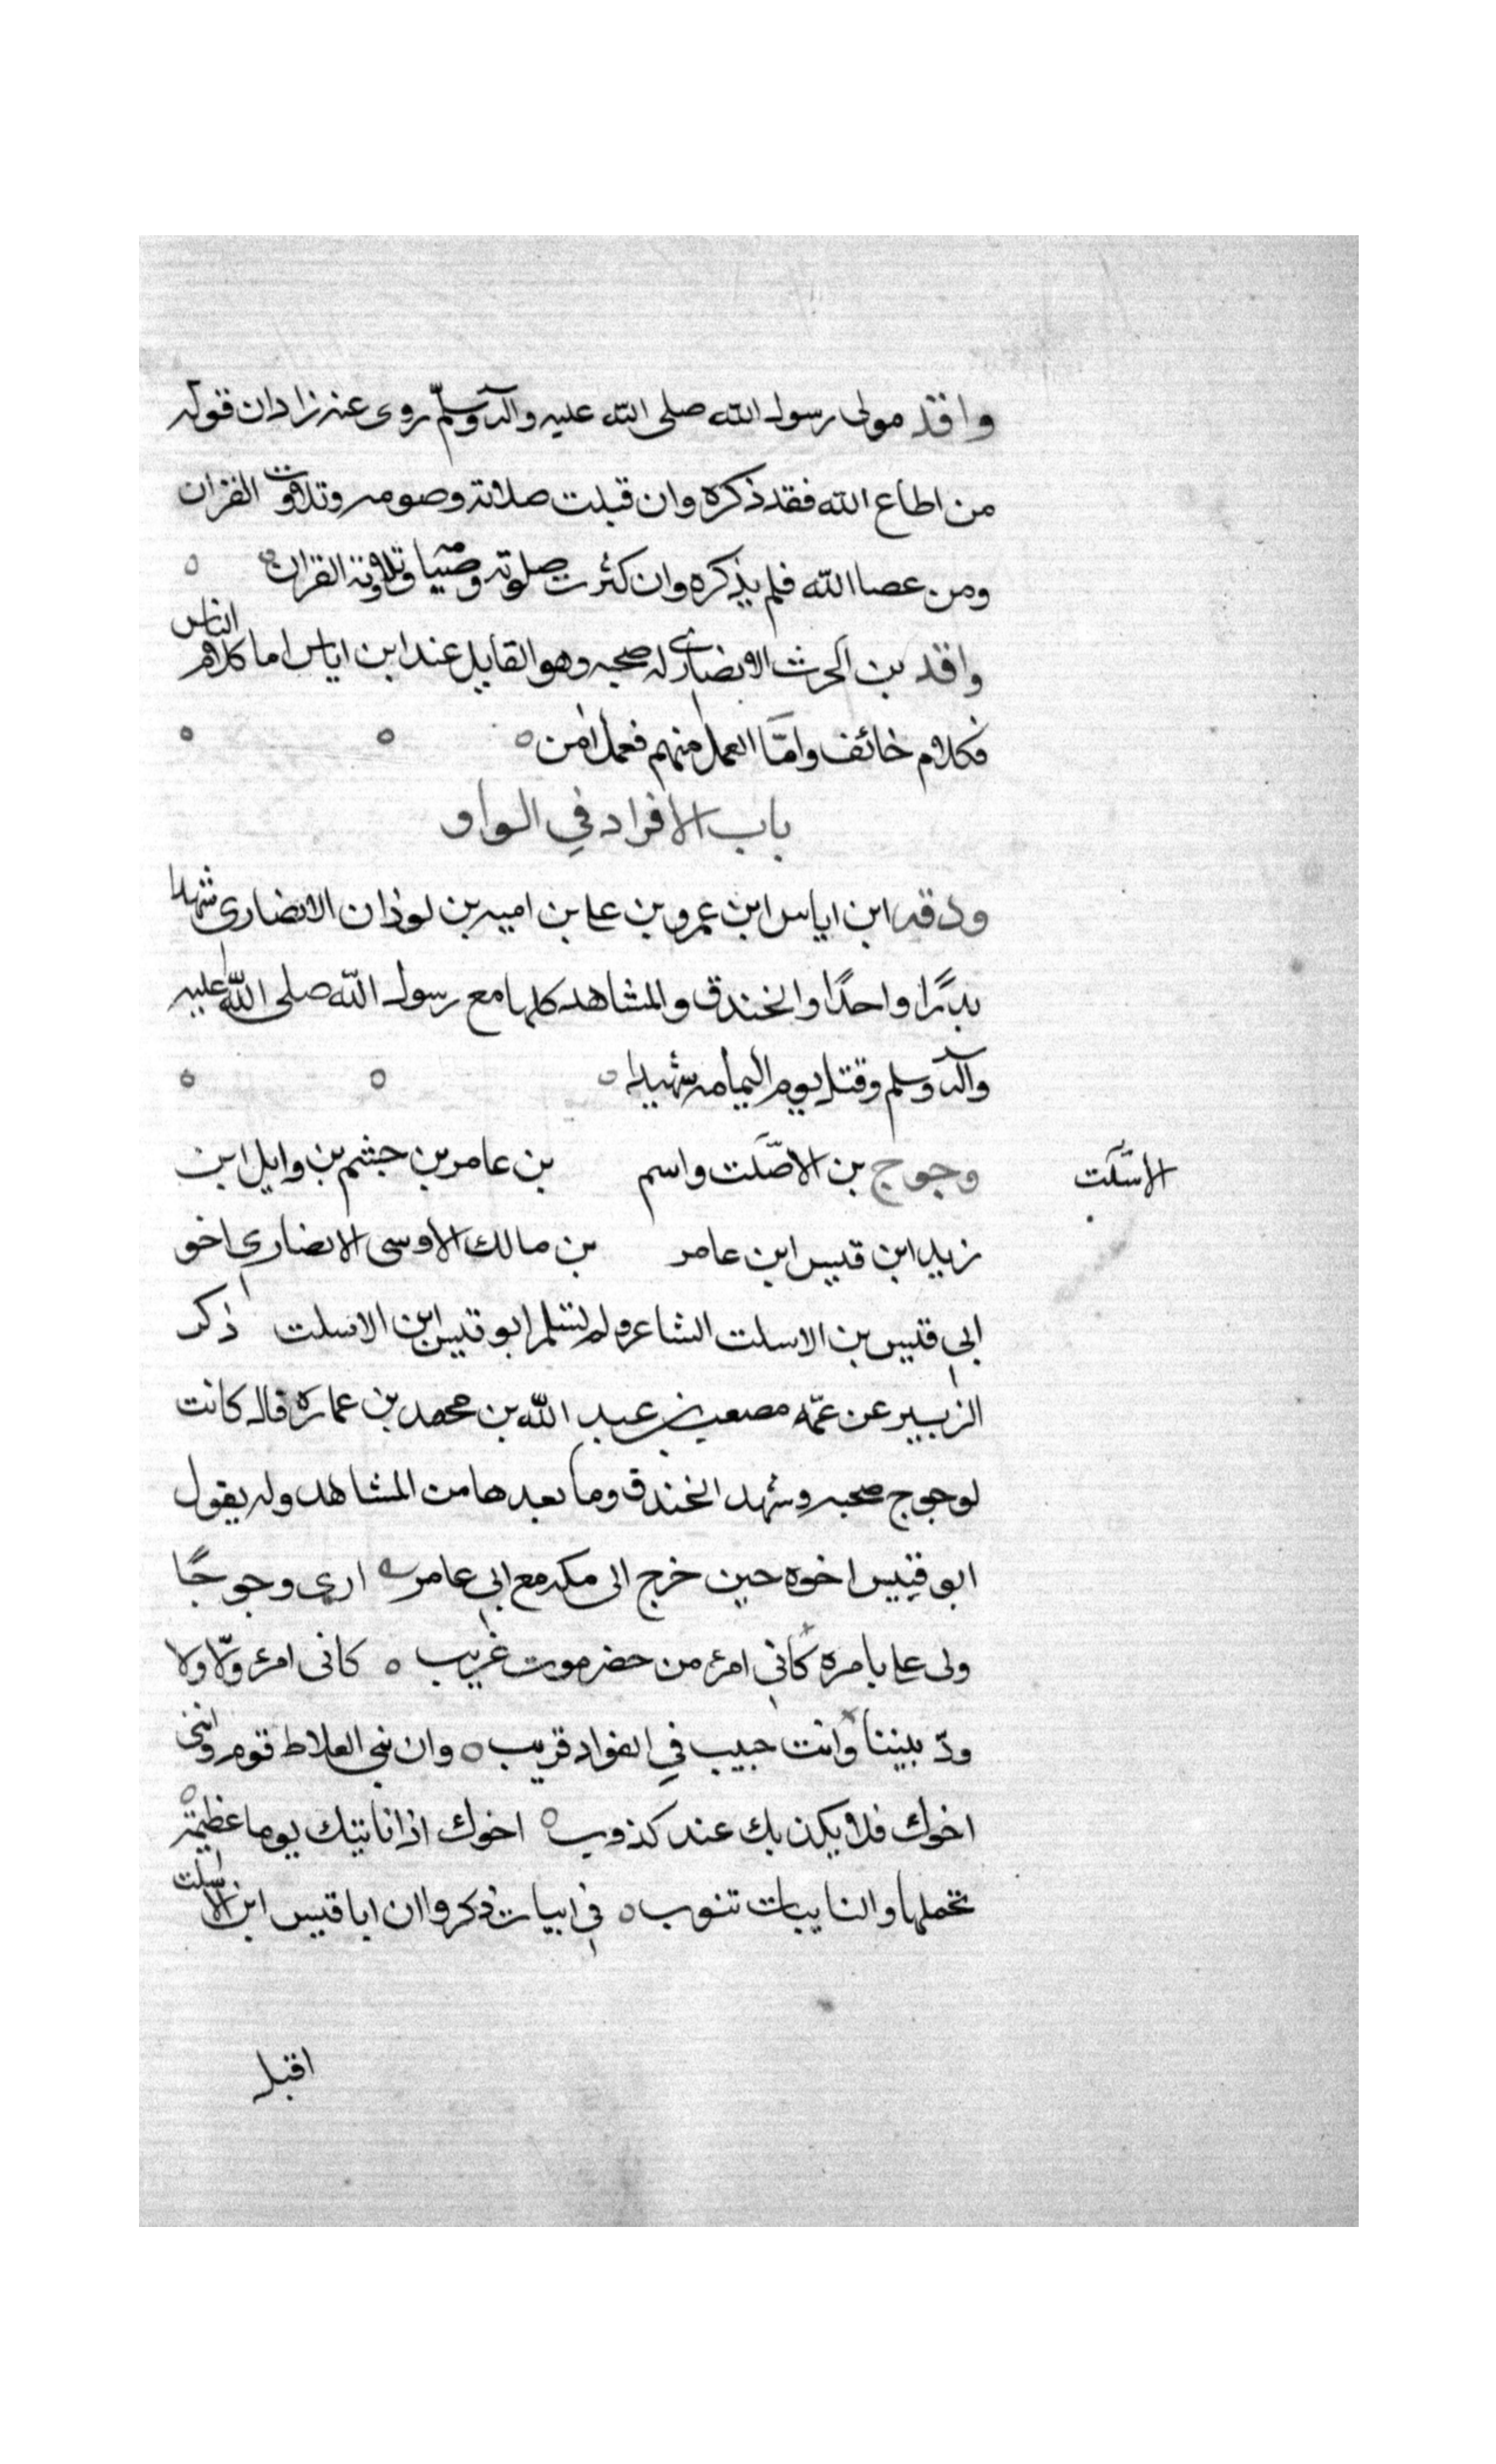 واقد مولى رسول الله صلى الله عليه وآله وسلم روى عنه زادان قوله
من اطاع الله فقد ذكره وان قبلت صلاته وصومه وتلاوت القران
ومن عصا الله فلم يذكره وان كثرت صلوته وصيامه وتلاوته القران
واقد بن الحرث الانصاري له صحبه وهو القايل عند ابن اياس اما كلام الناس
فكلام خائف وامّا العمل منهم فعمل امن
باب الافراد في الواو
ودقه ابن اياس ابن عمرو بن عا بن اميه بن لوذان الانصاري شهدا
بدرًا واحدًا والخندق والمشاهد كلها مع رسول الله صلى الله عليه
وآله وسلم وقتل يوم اليمامه شهيدا
وجوج بن الاصّلت واسم بن عامر بن جشم بن وايل ابن
الاسّلت
زيد ابن قيس ابن عامر بن مالك الاوسى الانصاري اخو
ابي قيس بن الاسلت الشاعر ولم يسلم ابو قيس ابن الاسلت ذكر
الزبير عن عمّه مصعب بن عبد الله بن محمد بن عماره قال كانت
لوجوج صحبه وشهد الخندق وما بعدها من المشاهد وله يقول
ابو قيس اخوه حين خرج الى مكه مع ابي عامر ارى وجوجًا
ولى عا بامره كأني امرء من حضرموت غريب كانى امرء ولّا ولا
ودّ بيننا وانت حبيب في الفواد قريب وان بني العلاط قوم وانني
اخوك فلا يكن بك عند كذوب اخوك اذا ناتيتك يوما عظيمة
تحملها والنايبات تنوب في ابيات ذكروا ان ابا قيس ابن الاسلت
اقبل